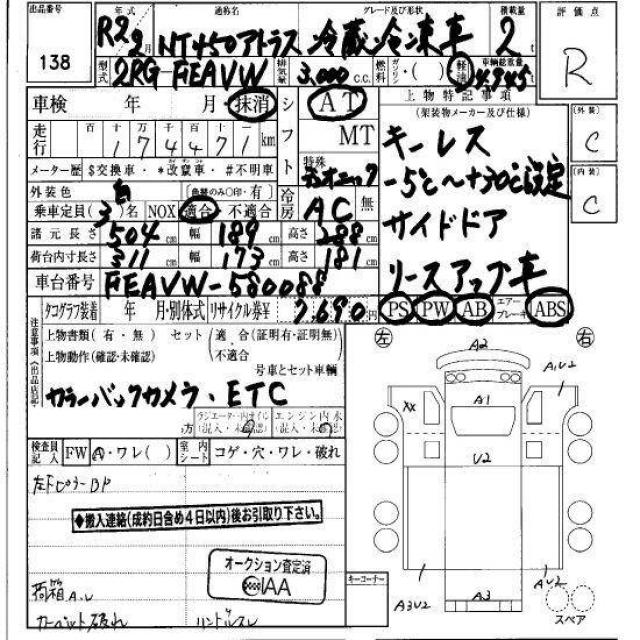 出品番号 年式 通称名 グレード及び形状 積載量 評価点
138 R2 2月 NT450アトラス 冷蔵冷凍車 2t R
型式 2RG FEAVW 排気量 3,000 C.C. 燃料 ガソリン・( ) 軽油 車輌総重量
車検 年 月・抹消 シフト AT 上物特記事項
(架装物メーカー及び仕様)
走行 百 十 万 千 百 十 一
174471 km MT キーレス 外装 C
メーター歴 $交換車・*改竄車・#不明車 特殊 -5℃~+30℃設定 内装 C
外装色 白 (色替のみ○印・有) 冷房 AC 無
乗車定員(3)名 NOX 適合 不適合 サイドドア
諸元長さ 504cm 幅 189cm 高さ 288cm
荷台内寸長さ 311cm 幅 173cm 高さ 181cm リースアップ車
車台番号 FEAVW-580088
タコグラフ装着 年 月・別体式 リサイクル券¥ 7,690円 PS PW AB エアーブレーキ ABS
注意事項(出品店記入)
上物書類(有・無) セット(適合(証明有・証明無)
上物動作(確認・未確認) 不適合
号車とセット車輌
カラーバックカメラ・ETC
左 右
A2
A1U2
XX A1
U2
検査員記入 FW A・ワレ( ) 室内シート コゲ・穴・ワレ・破れ
左ドCピラーDP
◆搬入連絡(成約日含め4日以内)後お引取り下さい。
オークション査定済
IAA
荷箱A.U キーコーナー A3U2 A3 AU2
カーペット破れ スペア